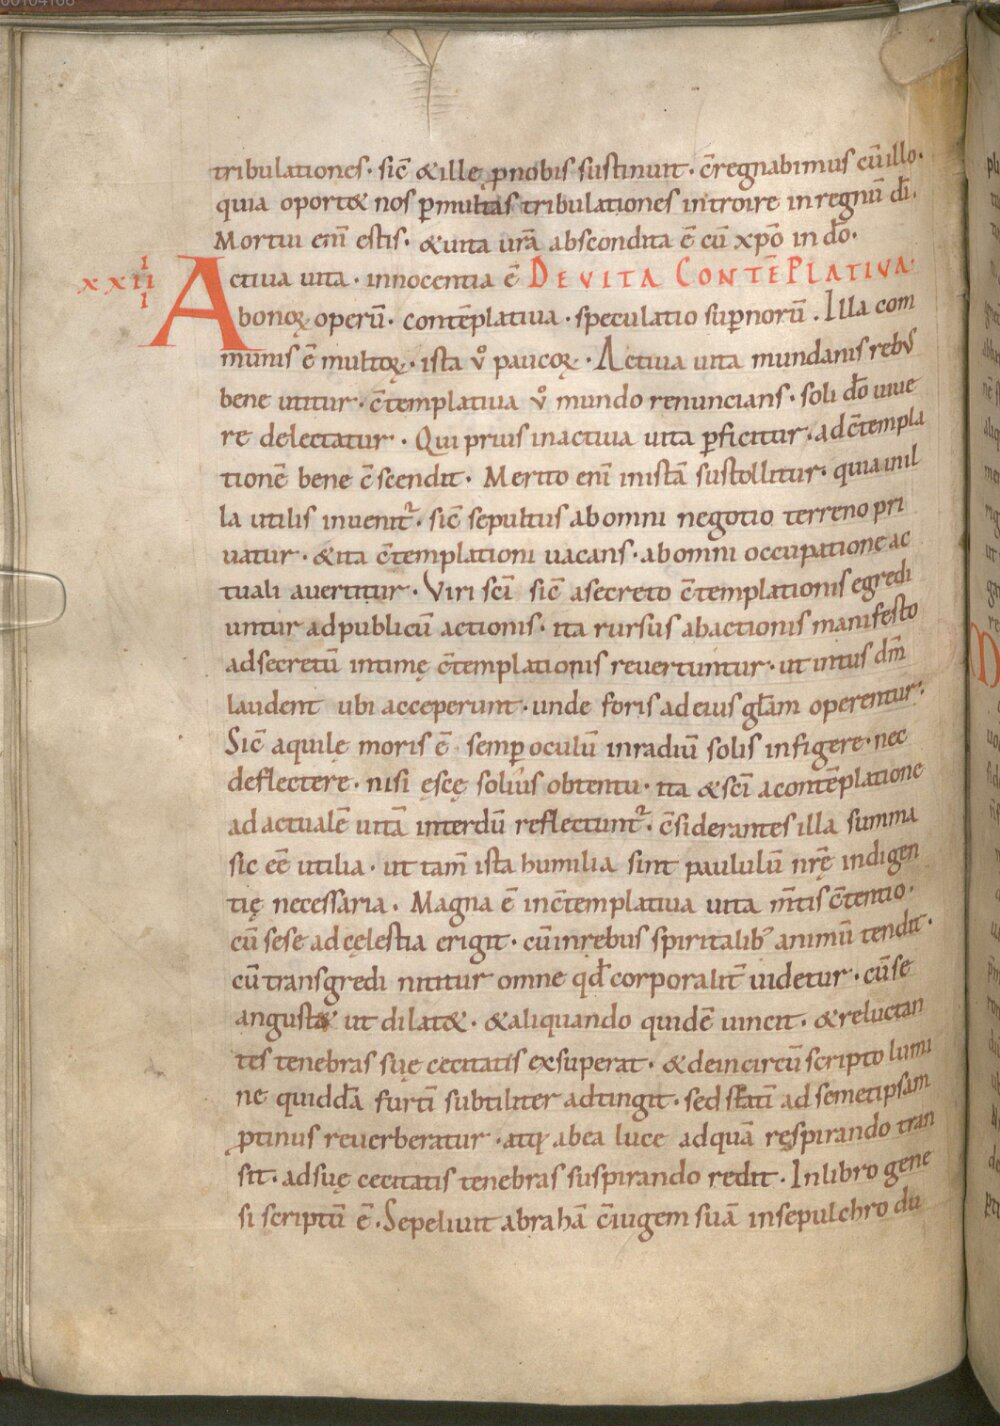 tribulationes· sic̄ &ille ꝓnobis sustinuit· c̄regnabimus cū illo·
quia oport& nos ꝑmultas tribulationes introire inregnū dī·
Mortui enī estis· &uita urā abscondita ē cū xp̄o in dō·
XXIIIII Actiua uita· innocentia ē DE UITA CONTĒPLATIUA·
bonoꝝ operū· contēplatiua· speculatio suꝑnorū. Illa com
munis ē multoꝝ· ista ů paucoꝝ· Actiua uita mundanis rebꝰ
bene utitur· c̄templatiua ů mundo renuncians· soli dō uiue
re delectatur· Qui prius inactiua uita ꝑficitur· ad c̄templa
tionē bene c̄scendit· Merito enī inistā sustollitur· quia inil
la utilis inuenit᷑· sic̄ sepultus abomni negotio terreno pri
uatur· &ita c̄templationi uacans· abomni occupatione ac
tuali auertitur· Viri sc̄i sic̄ asecreto c̄templationis egredi
untur adpublicū actionis· ita rursus abactionis manifesto
adsecretū intimę c̄templationis reuertuntur· ut intus dm̄
laudent ubi acceperunt· unde foris adeius gl̄am operentur·
Sic̄ aquilę moris ē semꝑ oculū inradiū solis infigere· nec
deflectere· nisi ęscę solius obtentu· ita &sc̄i acontēplatione
ad actualē uitā interdū reflectunt᷑· c̄siderantes illa summa
sic eē utilia· ut tam̄ ista humilia sint paululū nrę̄ indigen
tię necessaria· Magna ē inc̄templatiua uita m̄tis c̄tentio·
cū sese adcęlestia erigit· cū inrebus spiritalibꝰ animū tendit·
cū transgredi nititur omne qd̄ corporalit̄ uidetur· cū se
angust& ut dilat&· &aliquando quidē uincit· &reluctan
tes tenebras suę cecitatis exsuperat· &deincircū scripto lumi
ne quiddā furtī subtiliter adtingit· sed statī ad semetipsam
ꝓtinus reuerberatur· atqꝫ abea luce adquā respirando tran
sit· adsuę cecitatis tenebras suspirando redit· Inlibro gene
si scriptū ē· Sepeliuit abrahā c̄iugem suā insepulchro du